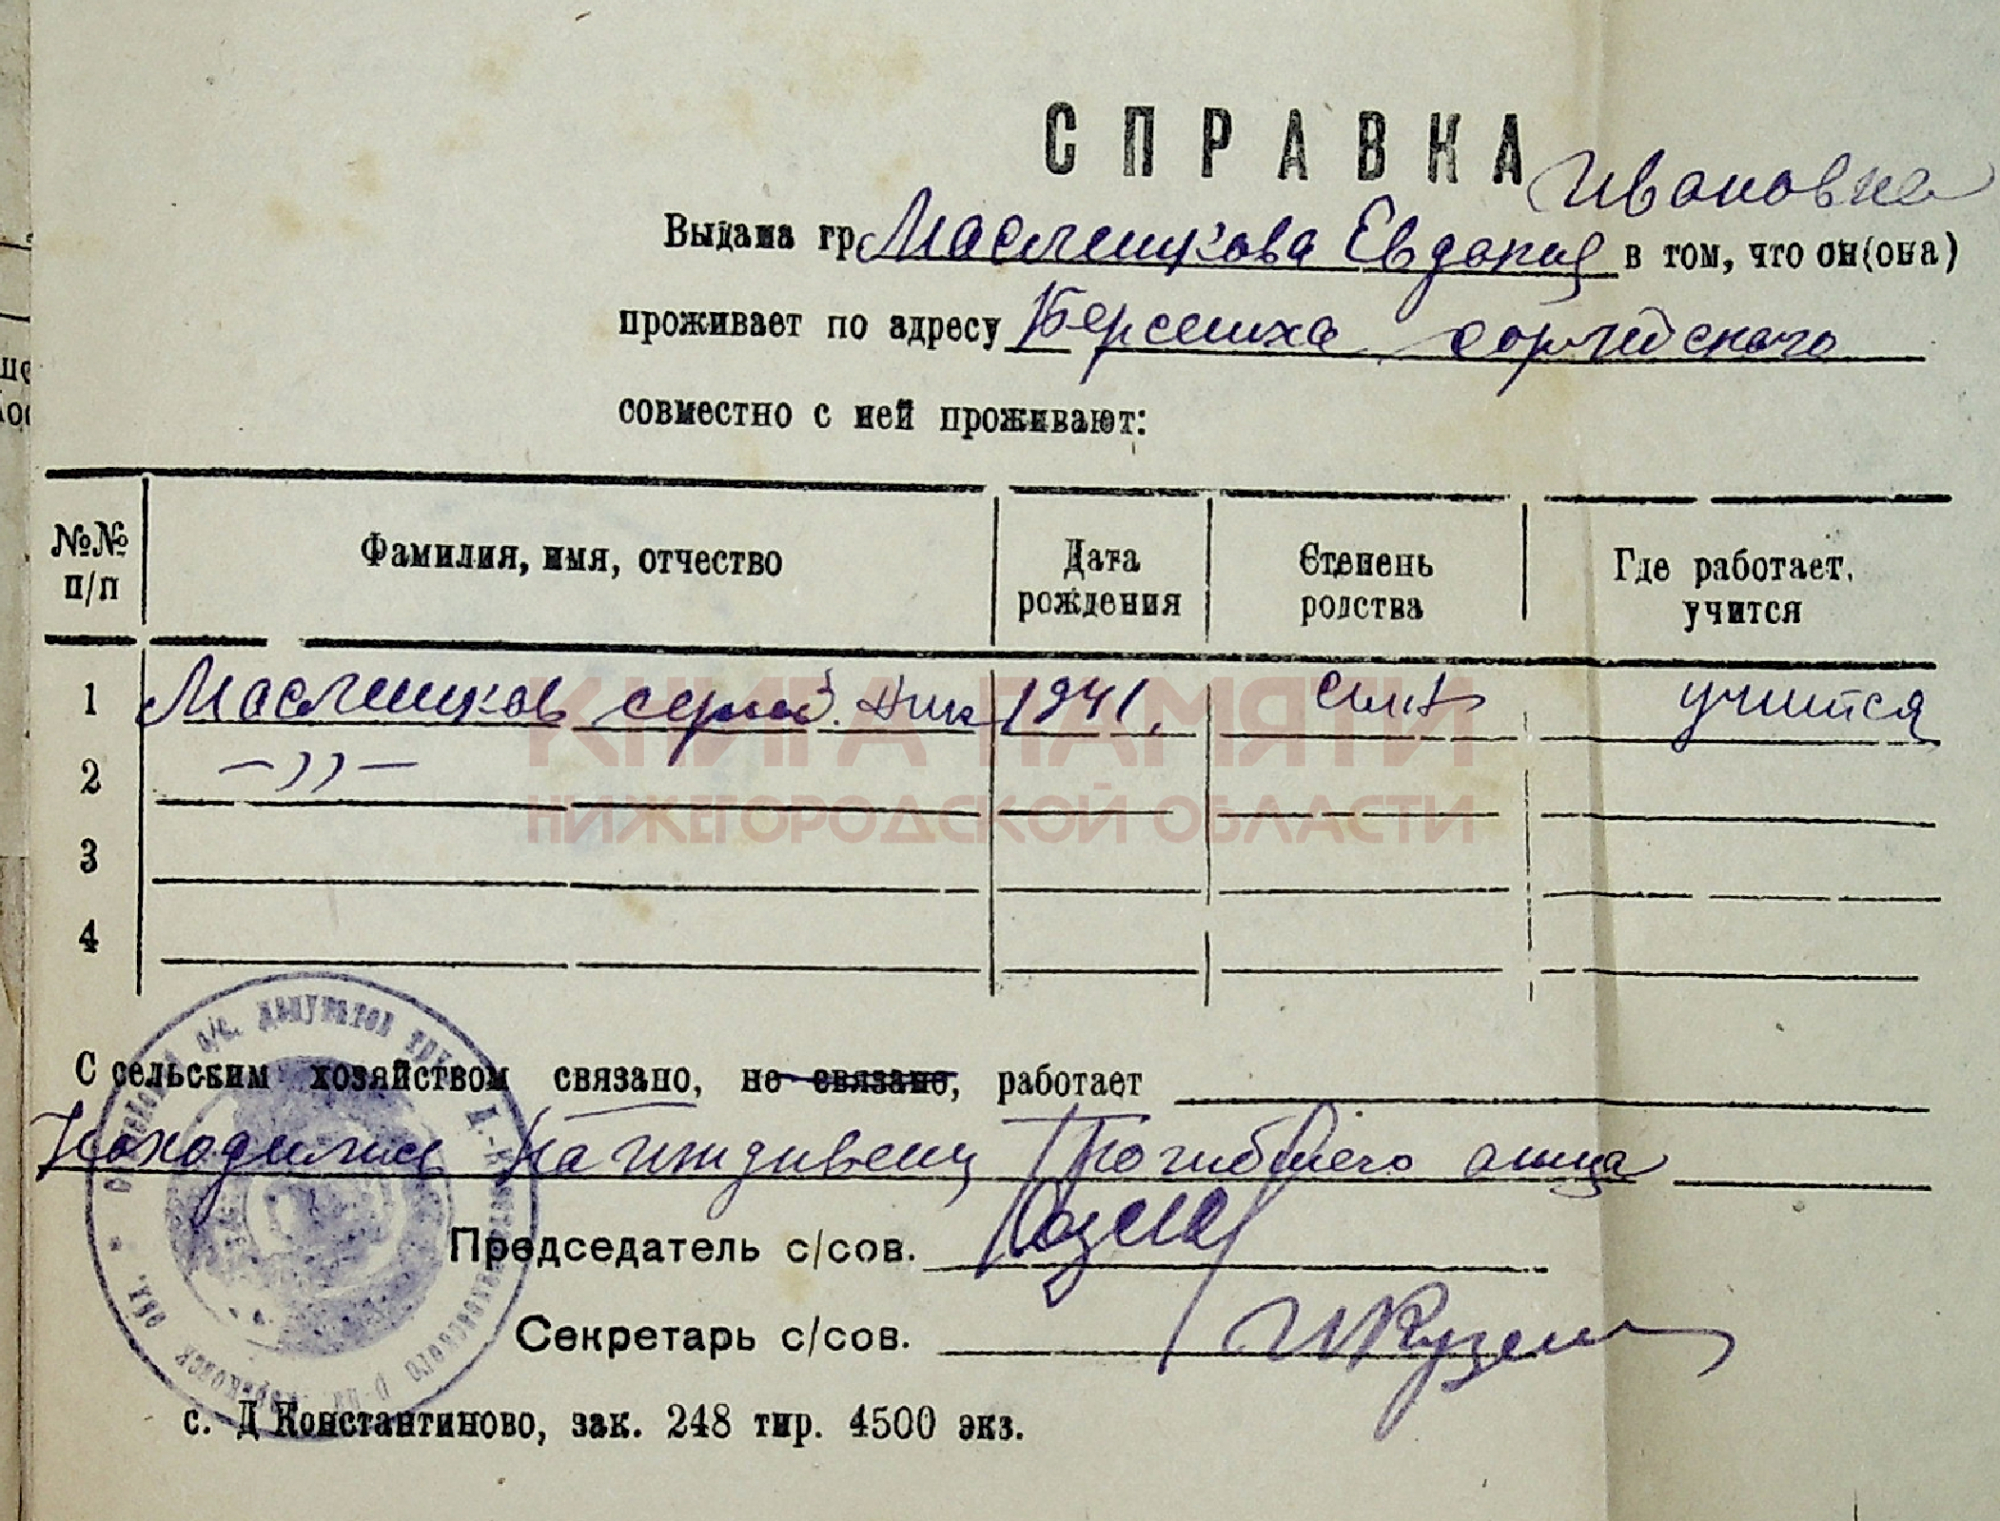 СПРАВКА
Ивановна
Выдана гр. Масленцкова Евдокия в том, что он(она)
проживает по адресу Берсениха
совместно с ней проживают:
№№ п/п Фамилия, имя, отчество Дата рождения Степень родства Где работает, учится
1 Масленцков Сергей Ник 1941. сын учится
2 —))—
3
4
С сельским хозяйством связано, не связано, работает
Находились на иждивении Погибшего отца
Председатель с/сов.
Секретарь с/сов.
с. Д Константиново, зак. 248 тир. 4500 экз.
КНИГА ПАМЯТИ
НИЖЕГОРОДСКОЙ ОБЛАСТИ
с/с. депутатов
Горьковск обл.